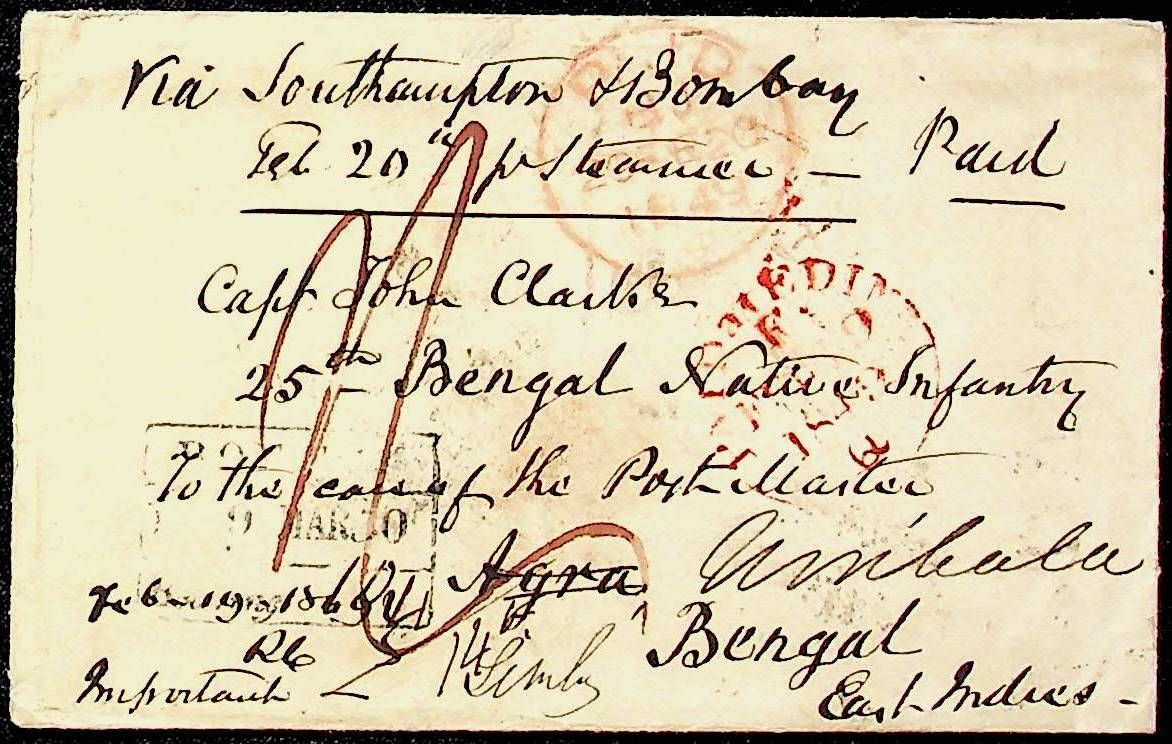 Via Southampton & Bombay
Feb 20th pr Steamer — Paid
PAID
Capt John Clarke
EDIN
25th Bengal Native Infantry
To the care of the Post Master
MAR
Agra Umbala
Feb 19
Bengal
Important
East Indies -